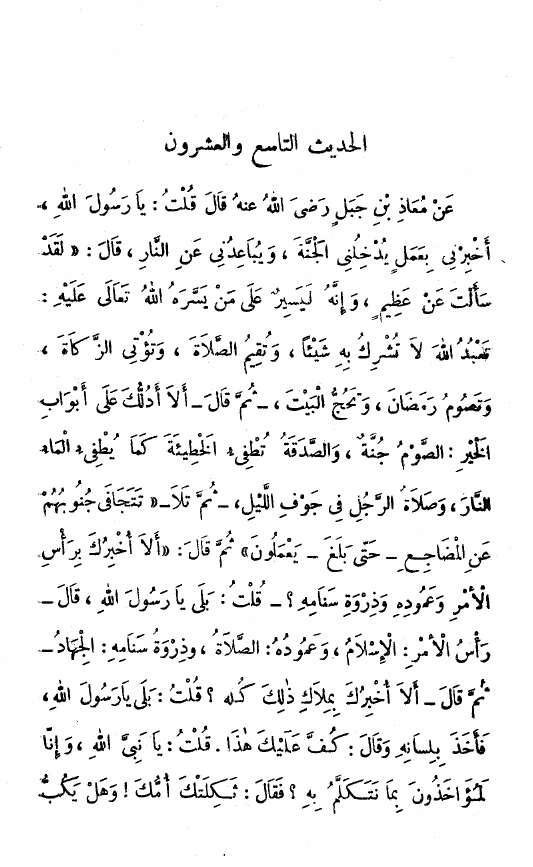 الحديث التاسع والعشرون
عَنْ مُعَاذِ بْنِ جَبَلٍ رَضىَ اللهُ عنهُ قَالَ قُلْتُ : يَا رَسُولَ اللهِ ،
أَخْبِرْنِي بِعَمَلٍ يُدْخِلُنِي الْجَنَّةَ ، وَيُبَاعِدُنِي عَنِ النَّارِ ، قَالَ : « لَقَدْ
سَأَلْتَ عَنْ عَظِيمٍ ، وَإِنَّهُ لَيَسِيرٌ عَلَى مَنْ يَسَّرَهُ اللهُ تَعَالَى عَلَيْهِ :
تَعْبُدُ اللهَ لاَ تُشْرِكُ بِهِ شَيْئًا ، وَتُقِيمُ الصَّلاَةَ ، وَتُؤْتِي الزَّكَاةَ ،
وَتَصُومُ رَمَضَانَ ، وَتَحُجُّ الْبَيْتَ ، ـ ثُمَّ قَالَ ـ أَلاَ أَدُلُّكَ عَلَى أَبْوَابِ
الْخَيْرِ : الصَّوْمُ جُنَّةٌ ، وَالصَّدَقَةُ تُطْفِىءُ الْخَطِيئَةَ كَمَا يُطْفِىءُ الْمَاءُ
النَّارَ ، وَصَلاَةُ الرَّجُلِ فِي جَوْفِ اللَّيْلِ ، ـ ثُمَّ تَلاَ ـ « تَتَجَافَى جُنُوبُهُمْ
عَنِ الْمَضَاجِعِ ـ حَتَّى بَلَغَ ـ يَعْمَلُونَ » ثُمَّ قَالَ : « أَلاَ أُخْبِرُكَ بِرَأْسِ
الْأَمْرِ وَعَمُودِهِ وَذِرْوَةِ سَنَامِهِ ؟ ـ قُلْتُ : بَلَى يَا رَسُولَ اللهِ ، قَالَ ـ
رَأْسُ الْأَمْرِ : الْإِسْلاَمُ ، وَعَمُودُهُ : الصَّلاَةُ ، وذِرْوَةُ سَنَامِهِ : الْجِهَادُ ـ
ثُمَّ قَالَ ـ أَلاَ أُخْبِرُكَ بِمِلاَكِ ذٰلِكَ كُلِّهِ ؟ قُلْتُ : بَلَى يَارَسُولَ اللهِ ،
فَأَخَذَ بِلِسَانِهِ وَقَالَ : كُفَّ عَلَيْكَ هٰذَا . قُلْتُ : يَا نَبِيَّ اللهِ ، وَإِنَّا
لَمُؤَاخَذُونَ بِمَا نَتَكَلَّمُ بِهِ ؟ فَقَالَ : ثَكِلَتْكَ أُمُّكَ ! وَهَلْ يَكُبُّ